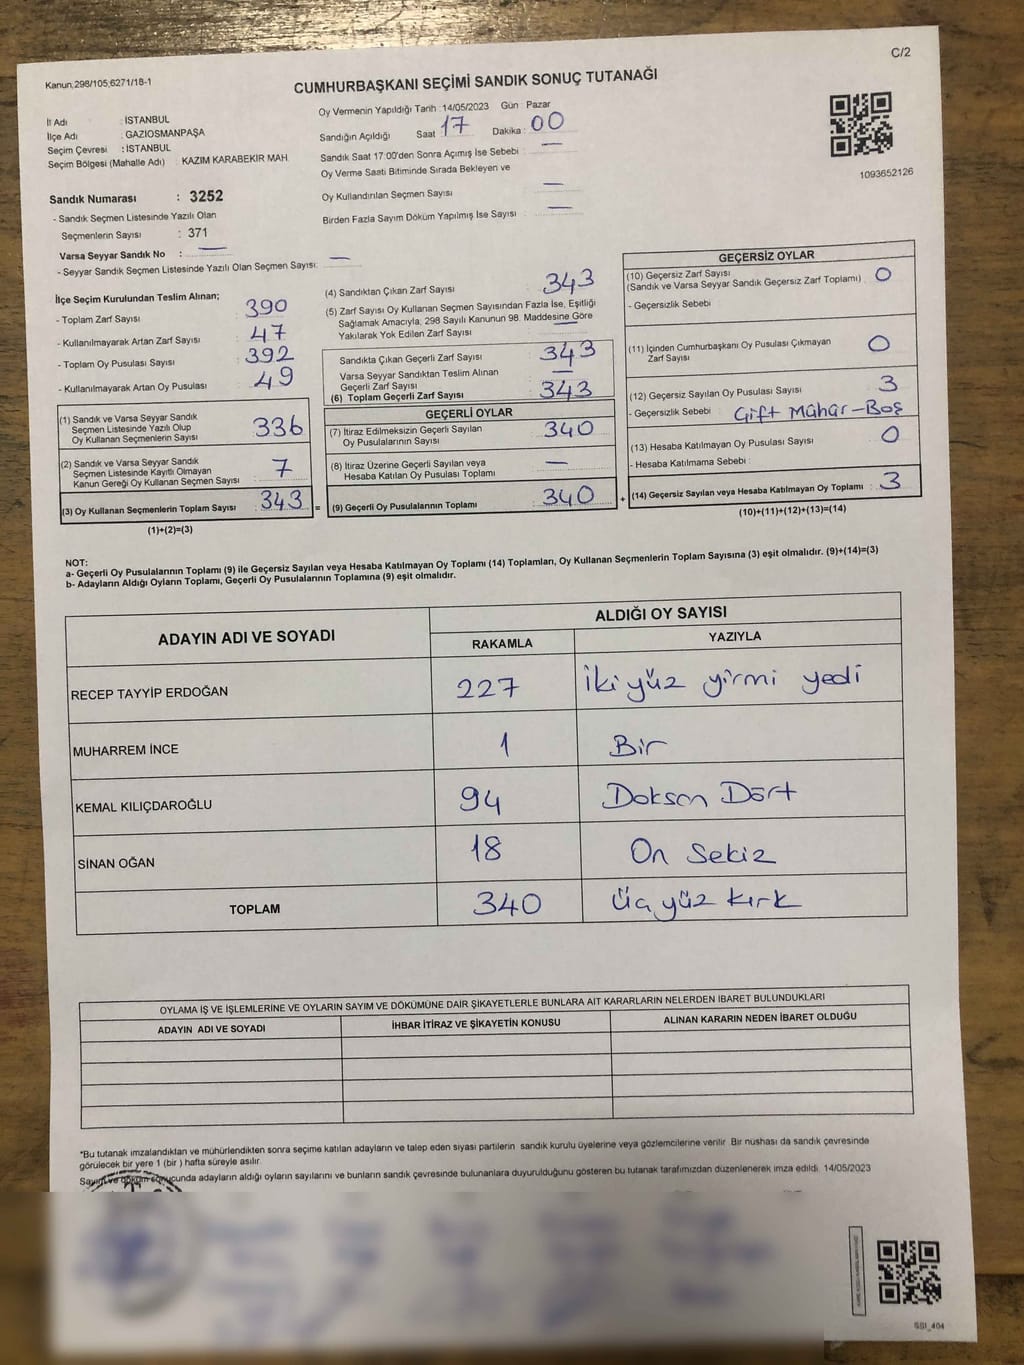 C/2
Kanun,298/105;6271/18-1
CUMHURBAŞKANI SEÇİMİ SANDIK SONUÇ TUTANAĞI
İl Adı : İSTANBUL
İlçe Adı : GAZİOSMANPAŞA
Seçim Çevresi : İSTANBUL
Seçim Bölgesi (Mahalle Adı) : KAZIM KARABEKİR MAH.
Sandık Numarası : 3252
- Sandık Seçmen Listesinde Yazılı Olan
Seçmenlerin Sayısı : 371
Varsa Seyyar Sandık No : —
- Seyyar Sandık Seçmen Listesinde Yazılı Olan Seçmen Sayısı: —
Oy Vermenin Yapıldığı Tarih :14/05/2023 Gün : Pazar
Sandığın Açıldığı Saat : 17 Dakika : 00
Sandık Saat 17:00'den Sonra Açımış İse Sebebi : —
Oy Verme Saati Bitiminde Sırada Bekleyen ve
Oy Kullandırılan Seçmen Sayısı : —
Birden Fazla Sayım Döküm Yapılmış İse Sayısı : —
1093652126
İlçe Seçim Kurulundan Teslim Alınan;
- Toplam Zarf Sayısı : 390
- Kullanılmayarak Artan Zarf Sayısı : 47
- Toplam Oy Pusulası Sayısı : 392
- Kullanılmayarak Artan Oy Pusulası : 49
(1) Sandık ve Varsa Seyyar Sandık
Seçmen Listesinde Yazılı Olup
Oy Kullanan Seçmenlerin Sayısı : 336
(2) Sandık ve Varsa Seyyar Sandık
Seçmen Listesinde Kayıtlı Olmayan
Kanun Gereği Oy Kullanan Seçmen Sayısı : 7
(3) Oy Kullanan Seçmenlerin Toplam Sayısı : 343 =
(1)+(2)=(3)
(4) Sandıktan Çıkan Zarf Sayısı : 343
(5) Zarf Sayısı Oy Kullanan Seçmen Sayısından Fazla İse, Eşitliği
Sağlamak Amacıyla, 298 Sayılı Kanunun 98. Maddesine Göre
Yakılarak Yok Edilen Zarf Sayısı : —
Sandıkta Çıkan Geçerli Zarf Sayısı : 343
Varsa Seyyar Sandıktan Teslim Alınan
Geçerli Zarf Sayısı : —
(6) Toplam Geçerli Zarf Sayısı : 343
GEÇERLİ OYLAR
(7) İtiraz Edilmeksizin Geçerli Sayılan
Oy Pusulalarının Sayısı : 340
(8) İtiraz Üzerine Geçerli Sayılan veya
Hesaba Katılan Oy Pusulası Toplamı : —
(9) Geçerli Oy Pusulalarının Toplamı : 340 +
GEÇERSİZ OYLAR
(10) Geçersiz Zarf Sayısı : 0
(Sandık ve Varsa Seyyar Sandık Geçersiz Zarf Toplamı)
- Geçersizlik Sebebi :
(11) İçinden Cumhurbaşkanı Oy Pusulası Çıkmayan
Zarf Sayısı : 0
(12) Geçersiz Sayılan Oy Pusulası Sayısı : 3
- Geçersizlik Sebebi : Çift Mühür-Boş
(13) Hesaba Katılmayan Oy Pusulası Sayısı : 0
- Hesaba Katılmama Sebebi :
(14) Geçersiz Sayılan veya Hesaba Katılmayan Oy Toplamı : 3
(10)+(11)+(12)+(13)=(14)
NOT:
a- Geçerli Oy Pusulalarının Toplamı (9) ile Geçersiz Sayılan veya Hesaba Katılmayan Oy Toplamı (14) Toplamları, Oy Kullanan Seçmenlerin Toplam Sayısına (3) eşit olmalıdır. (9)+(14)=(3)
b- Adayların Aldığı Oyların Toplamı, Geçerli Oy Pusulalarının Toplamına (9) eşit olmalıdır.
ADAYIN ADI VE SOYADI ALDIĞI OY SAYISI
RAKAMLA YAZIYLA
RECEP TAYYİP ERDOĞAN 227 İki yüz yirmi yedi
MUHARREM İNCE 1 Bir
KEMAL KILIÇDAROĞLU 94 Doksan Dört
SİNAN OĞAN 18 On Sekiz
TOPLAM 340 Üç yüz kırk
OYLAMA İŞ VE İŞLEMLERİNE VE OYLARIN SAYIM VE DÖKÜMÜNE DAİR ŞİKAYETLERLE BUNLARA AİT KARARLARIN NELERDEN İBARET BULUNDUKLARI
ADAYIN ADI VE SOYADI İHBAR İTİRAZ VE ŞİKAYETİN KONUSU ALINAN KARARIN NEDEN İBARET OLDUĞU
*Bu tutanak imzalandıktan ve mühürlendikten sonra seçime katılan adayların ve talep eden siyasi partilerin sandık kurulu üyelerine veya gözlemcilerine verilir. Bir nüshası da sandık çevresinde
görülecek bir yere 1 (bir ) hafta süreyle asılır.
Sayım ve döküm sonucunda adayların aldığı oyların sayılarını ve bunların sandık çevresinde bulunanlara duyurulduğunu gösteren bu tutanak tarafımızdan düzenlenerek imza edildi. 14/05/2023
SSI_404